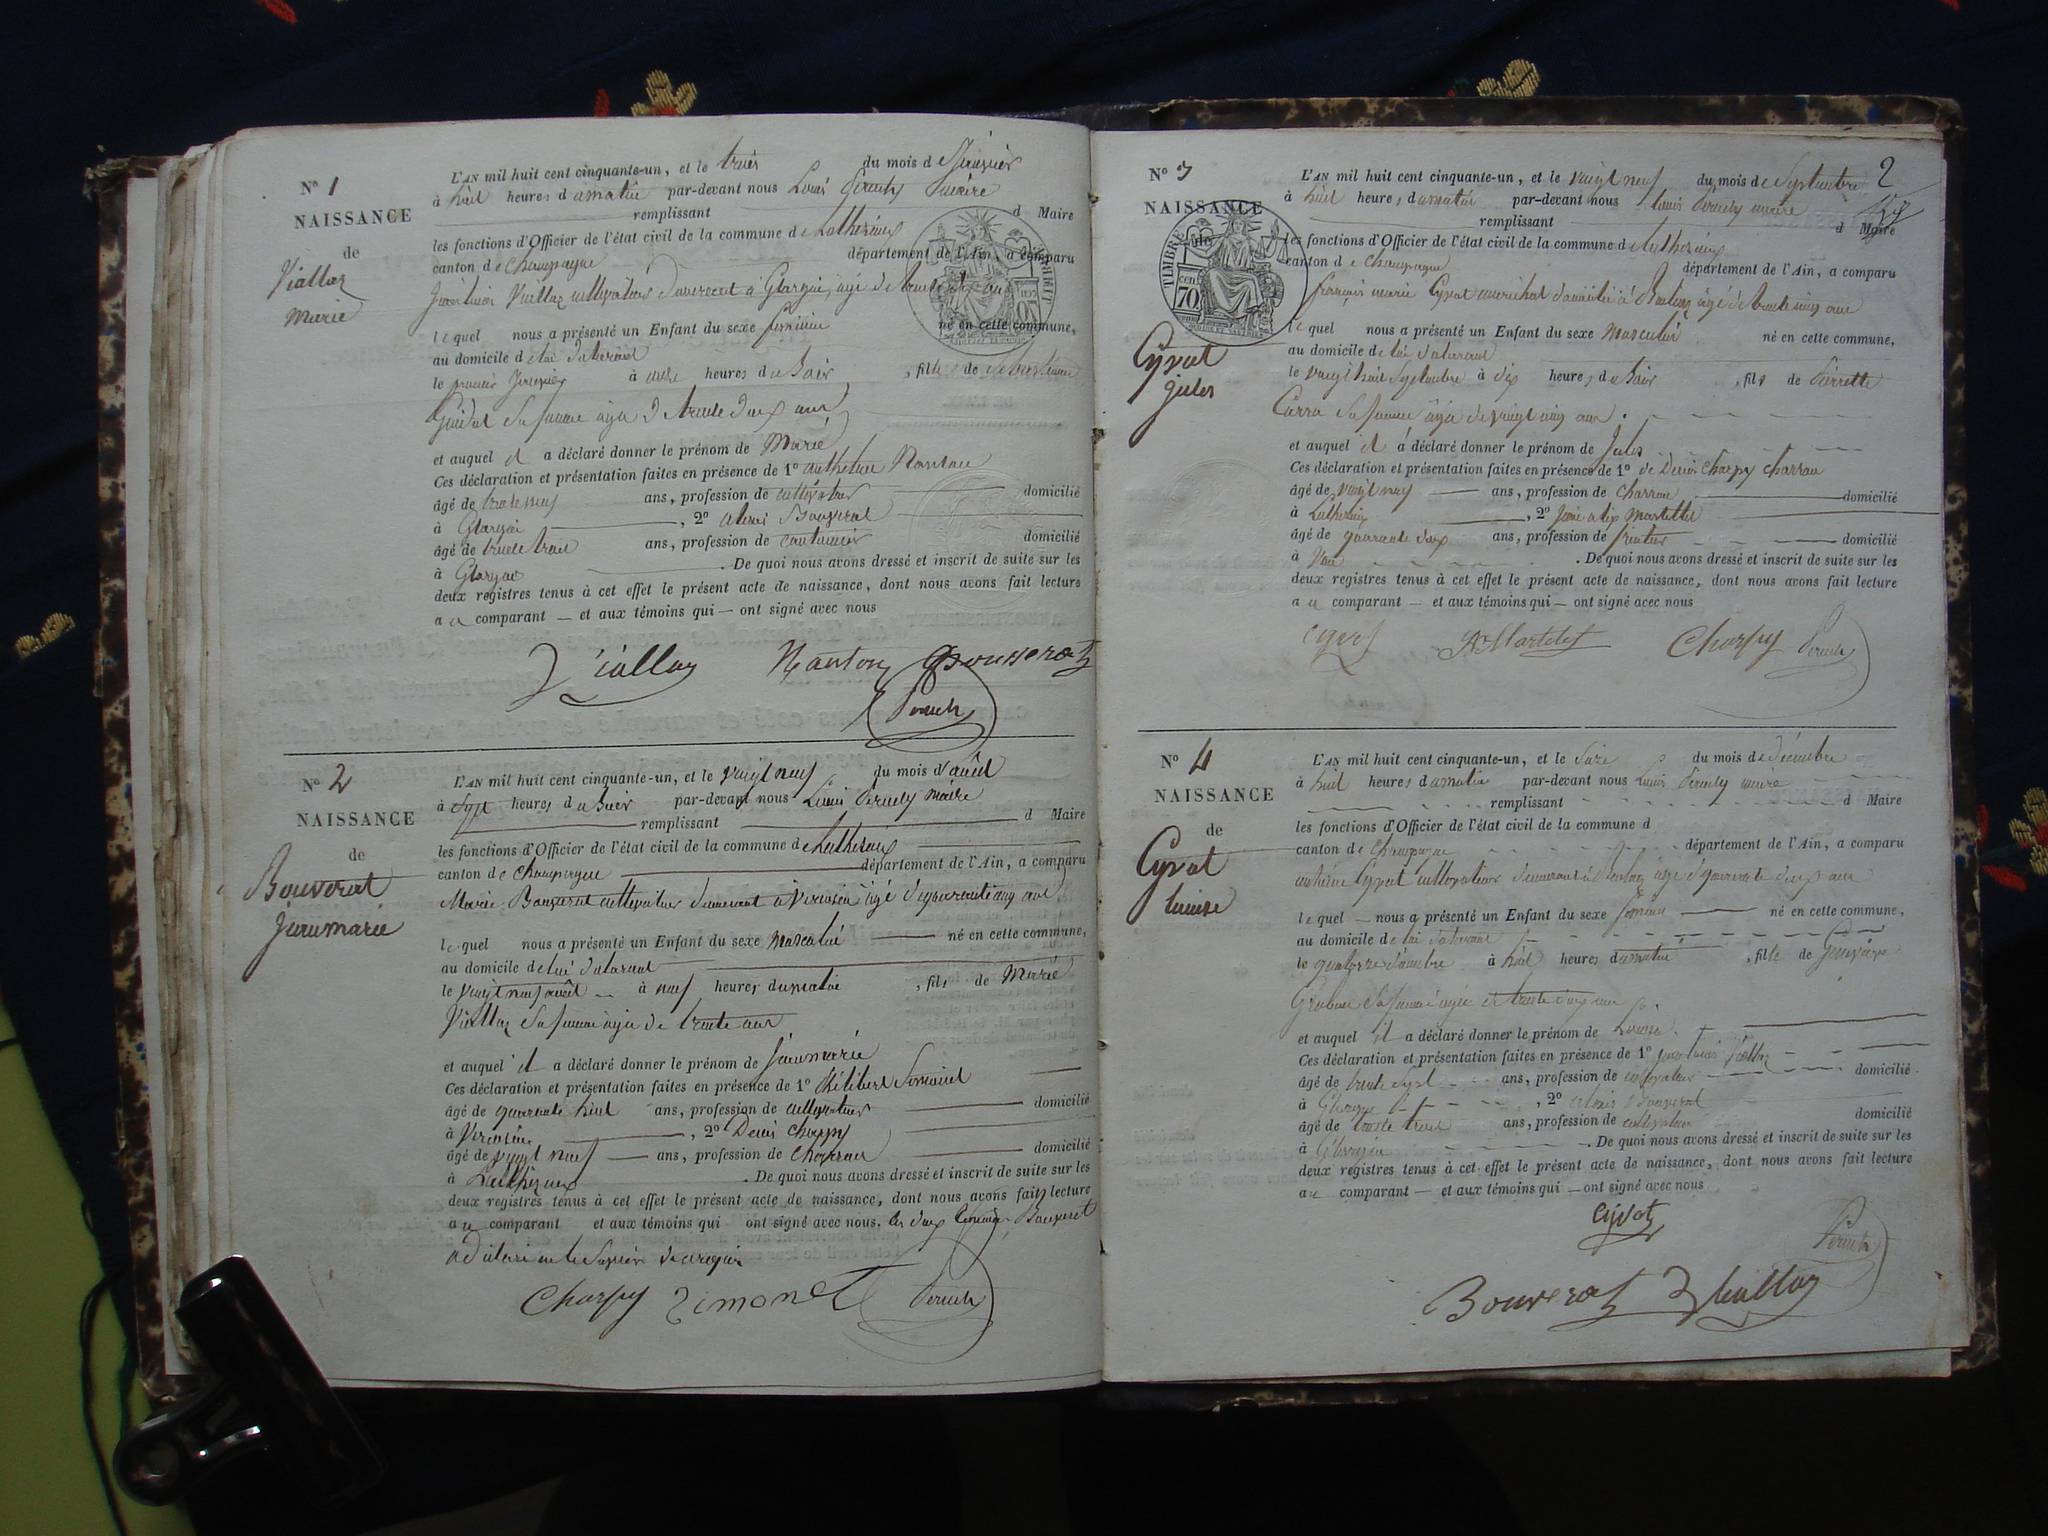 N° 1
NAISSANCE
de
Viallaz
Marie
L'AN mil huit cent cinquante-un, et le trois du mois de Janvier
à huit heures du matin par-devant nous Louis Maire
remplissant d Maire
les fonctions d'Officier de l'état civil de la commune de
canton de Champagne département de l'Ain, a comparu
Viallaz cultivateur demeurant à âgé de trente six ans
le quel nous a présenté un Enfant du sexe féminin né en cette commune,
au domicile de lui déclarant
le premier Janvier à onze heures du Soir, fille de
Sa femme âgée de trente deux ans
et auquel il a déclaré donner le prénom de Marie
Ces déclaration et présentation faites en présence de 1° anthelme Nanton
âgé de trente neuf ans, profession de cultivateur domicilié
à , 2° alexis Bouverat
âgé de trente trois ans, profession de domicilié
à . De quoi nous avons dressé et inscrit de suite sur les
deux registres tenus à cet effet le présent acte de naissance, dont nous avons fait lecture
a u comparant — et aux témoins qui — ont signé avec nous
Viallaz Nanton Bouverat
N° 2
NAISSANCE
de
Bouverat
Jeanmarie
L'AN mil huit cent cinquante-un, et le vingt neuf du mois d'août
à Sept heures du Soir par-devant nous Louis Maire
remplissant d Maire
les fonctions d'Officier de l'état civil de la commune de
canton de Champagne département de l'Ain, a comparu
Marie Bouverat cultivateur demeurant à Virieu âgé de quarante cinq ans
le quel nous a présenté un Enfant du sexe masculin né en cette commune,
au domicile de lui déclarant
le vingt neuf août à neuf heures du matin, fils de Marie
Viallaz Sa femme âgée de trente ans
et auquel il a déclaré donner le prénom de Jeanmarie
Ces déclaration et présentation faites en présence de 1° Philibert Simonet
âgé de quarante huit ans, profession de cultivateur domicilié
à , 2° Denis Charpy
âgé de vingt neuf ans, profession de Charron domicilié
à . De quoi nous avons dressé et inscrit de suite sur les
deux registres tenus à cet effet le présent acte de naissance, dont nous avons fait lecture
a u comparant et aux témoins qui ont signé avec nous, les deux témoins, Bouverat
a déclaré ne le Savoir de
Charpy Simonet
2
N° 3
NAISSANCE
de
Cyvat
Jules
TIMBRE
70 cen
L'AN mil huit cent cinquante-un, et le vingt neuf du mois de Septembre
à huit heures du matin par-devant nous Louis maire
remplissant d Maire
les fonctions d'Officier de l'état civil de la commune de
canton de Champagne département de l'Ain, a comparu
françois marie Cyvat maréchal domicilié à âgé de trente cinq ans
le quel nous a présenté un Enfant du sexe masculin né en cette commune,
au domicile de lui déclarant
le vingt huit Septembre à dix heures du Soir, fils de Pierrette
Carra Sa femme âgée de vingt cinq ans.
et auquel il a déclaré donner le prénom de Jules
Ces déclaration et présentation faites en présence de 1° de Denis Charpy Charron
âgé de vingt neuf ans, profession de Charron domicilié
à , 2° Martelet
âgé de quarante deux ans, profession de domicilié
à . De quoi nous avons dressé et inscrit de suite sur les
deux registres tenus à cet effet le présent acte de naissance, dont nous avons fait lecture
a u comparant — et aux témoins qui — ont signé avec nous
Cyvat Martelet Charpy
N° 4
NAISSANCE
de
Cyvat
Louise
L'AN mil huit cent cinquante-un, et le Seize du mois de décembre
à huit heures du matin par-devant nous Louis maire
remplissant d Maire
les fonctions d'Officier de l'état civil de la commune d
canton de Champagne département de l'Ain, a comparu
Cyvat cultivateur demeurant à âgé de quarante deux ans
le quel — nous a présenté un Enfant du sexe féminin né en cette commune,
au domicile de lui déclarant
le quatorze décembre à huit heures du matin, fille de
Sa femme âgée de trente cinq ans
et auquel il a déclaré donner le prénom de Louise.
Ces déclaration et présentation faites en présence de 1° Viallaz
âgé de trente Sept ans, profession de cultivateur domicilié
à , 2° alexis Bouverat
âgé de trente trois ans, profession de cultivateur domicilié
à . De quoi nous avons dressé et inscrit de suite sur les
deux registres tenus à cet effet le présent acte de naissance, dont nous avons fait lecture
a u comparant — et aux témoins qui — ont signé avec nous
Cyvat
Bouverat Viallaz